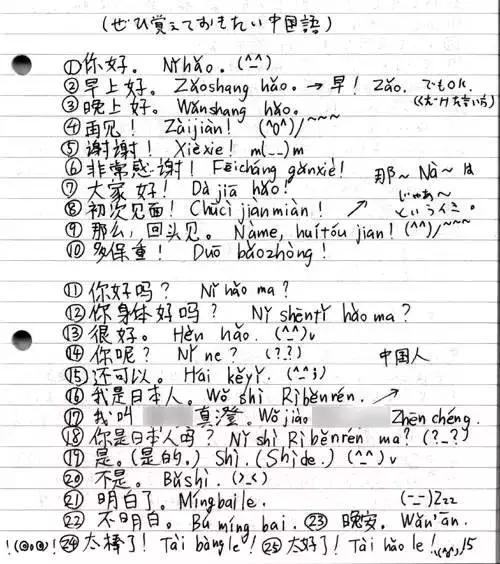 (ぜひ覚えておきたい中国語)
①你好。 Nǐhǎo. (^_^)
②早上好。 Zǎoshang hǎo. → 早! Zǎo. でもOK.
③晚上好。 Wǎnshang hǎo.
④再见! Zàijiàn! (^o^)/~~~
⑤谢谢! Xièxie! m(__)m
⑥非常感谢! Fēicháng gǎnxiè!
那~ Nà~ は
⑦大家好! Dàjiā hǎo!
じゃあ~
⑧初次见面! Chūcì jiànmiàn! ↗
という
⑨那么,回头见。 Nàme, huítóu jian! (^^)/~~~
⑩多保重! Duō bǎozhòng!
⑪你好吗? Nǐ hǎo ma?
⑫你身体好吗? Nǐ shēntǐ hǎo ma?
⑬很好。 Hěn hǎo. (^_^)v
⑭你呢? Nǐ ne? (?_?) 中国人
⑮还可以。 Hái kěyǐ. (^_^;)
⑯我是日本人。 Wǒ shì Rìběnrén. ↗
⑰我叫 真澄。 Wǒ jiào Zhēn chéng.
⑱你是日本人吗? Nǐ shì Rìběnrén ma? (?_?)
⑲是。(是的。) Shì. (Shìde.) (^_^)v
⑳不是。 Búshì. (>_<)
㉑明白了。 Míngbaile. (-_-)Zzz
㉒不明白。 Bù míng bai. ㉓晚安。 Wǎn'ān.
!(@o@)! ㉔太棒了! Tài bàng le! ㉕太好了! Tài hǎo le!